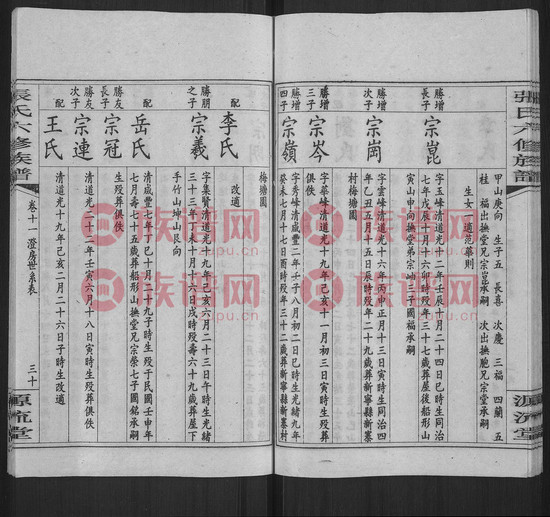 張氏六修族譜
源流堂
甲山庚向 生子五 長喜 次慶 三福 四蘭 五
桂 福出撫堂兄宗崑承嗣 次出撫胞兄宗堂承嗣
生女一適范藥則
勝增
長子
宗崑
字玉峰清道光十二年壬辰十月二十七日巳時生同治
七年戊辰十月十六卯時歿年三十七歲葬屋後船形山
寅山申向撫堂弟宗嶺三子國福承嗣
勝增
次子
宗岡
字雲峰清道光十六年丙申正月十三日寅時生同治四
年乙丑五月十五日辰時歿年二十九歲葬新寧縣新寨
村梅塘圓
勝增
三子
宗岑
字華峰清道光十九年己亥十一月初三日寅時生歿葬
俱佚
勝增
四子
宗嶺
字秀峰清咸豐二年壬子八月初二日巳時生光緒九年
癸未七月十七日酉時歿年三十二歲葬新寧縣新寨村
梅塘圓
配
李氏
改適
勝朋
之子
宗羲
字集賢清道光十九年己亥六月二十三日午時生光緒
三十三年丁未十月十六日戌時歿壽六十九歲葬屋下
手竹山坤山艮向
配
岳氏
清咸豐七年丁巳十月二十九子時生歿于民國壬申年
七月壽七十五歲葬船形山撫堂兄宗榮七子國銘承嗣
勝友
長子
宗冠
生歿葬俱佚
勝友
次子
宗連
清道光二十二年壬寅六月十八日寅時生歿葬俱佚
配
王氏
清道光十九年己亥二月二十六日子時生改適
張氏六修族譜
卷十一 澄房世系表
三十
源流堂
族譜网
族譜网
族譜网
族譜网